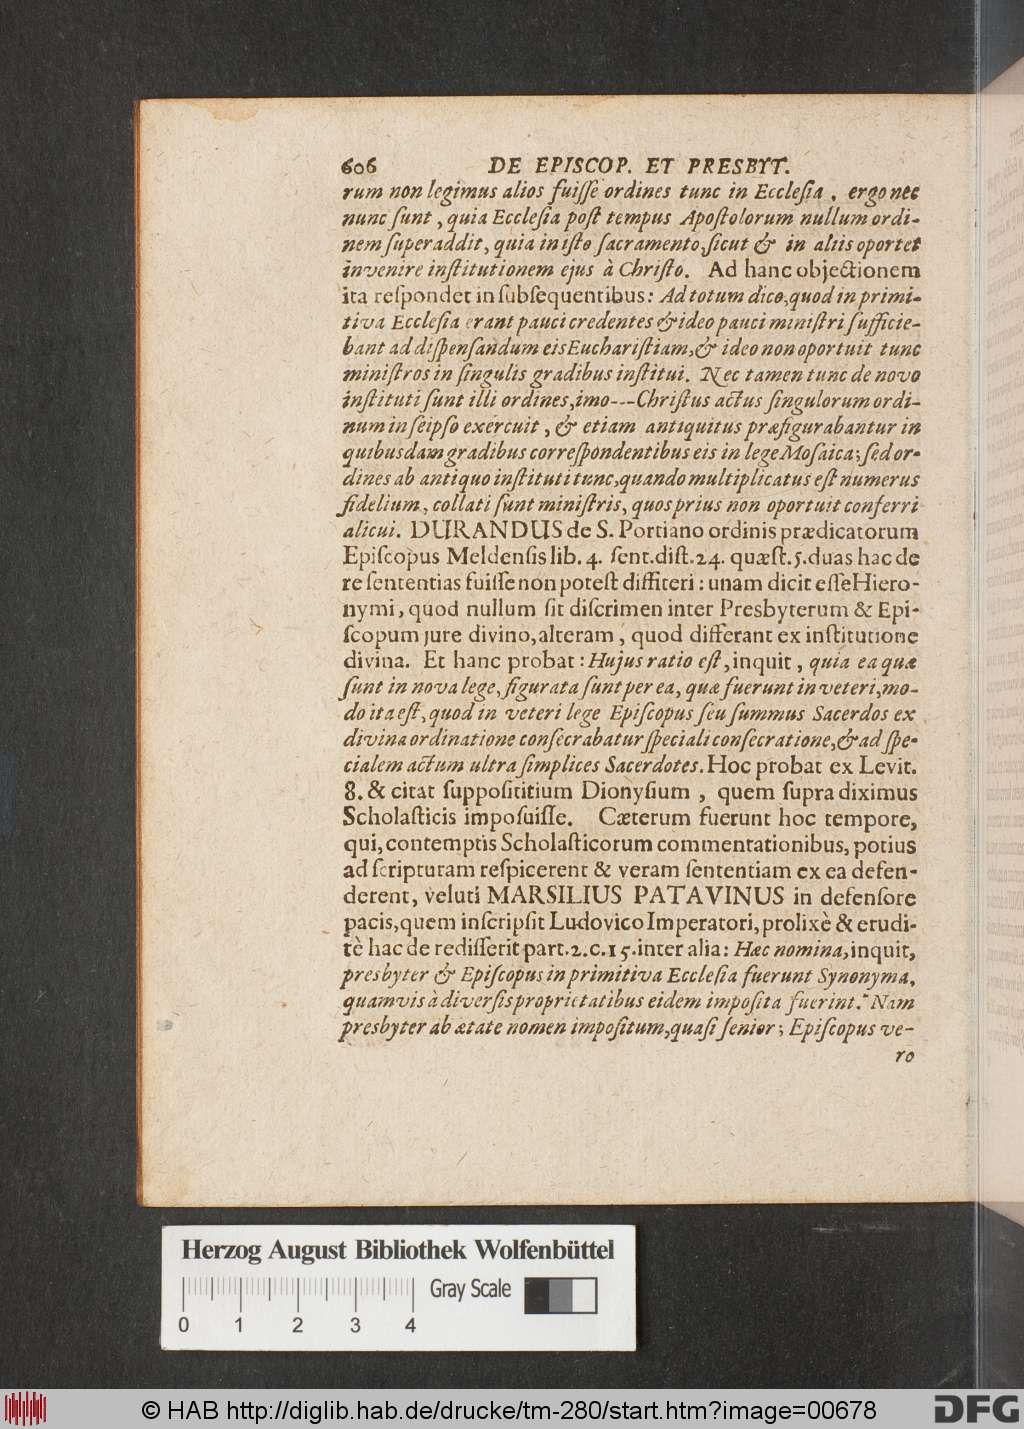 606 DE EPISCOP. ET PRESBYT.
rum non legimus alios fuiſſe ordines tunc in Eccleſia, ergo nec
nunc ſunt, quia Eccleſia poſt tempus Apoſtolorum nullum ordi-
nem ſuperaddit, quia in iſto ſacramento, ſicut & in aliis oportet
invenire inſtitutionem ejus à Chriſto. Ad hanc objectionem
ita reſpondet in ſubſequentibus: Ad totum dico, quod in primi-
tiva Eccleſia erant pauci credentes & ideo pauci miniſtri ſufficie-
bant ad diſpenſandum eis Euchariſtiam, & ideo non oportuit tunc
miniſtros in ſingulis gradibus inſtitui. Nec tamen tunc de novo
inſtituti ſunt illi ordines, imo---Chriſtus actus ſingulorum ordi-
num in ſeipſo exercuit, & etiam antiquitus præfigurabantur in
quibusdam gradibus correſpondentibus eis in lege Moſaica; ſed or-
dines ab antiquo inſtituti tunc, quando multiplicatus eſt numerus
fidelium, collati ſunt miniſtris, quos prius non oportuit conferri
alicui. DURANDUS de S. Portiano ordinis prædicatorum
Epiſcopus Meldenſis lib. 4. ſent. diſt. 24. quæſt. 5. duas hac de
re ſententias fuiſſe non poteſt diffiteri: unam dicit eſſe Hiero-
nymi, quod nullum ſit diſcrimen inter Presbyterum & Epi-
ſcopum jure divino, alteram, quod differant ex inſtitutione
divina. Et hanc probat: Hujus ratio eſt, inquit, quia ea quæ
ſunt in nova lege, figurata ſunt per ea, quæ fuerunt in veteri, mo-
do ita eſt, quod in veteri lege Epiſcopus ſeu ſummus Sacerdos ex
divina ordinatione conſecrabatur ſpeciali conſecratione, & ad ſpe-
cialem actum ultra ſimplices Sacerdotes. Hoc probat ex Levit.
8. & citat ſuppoſititium Dionyſium, quem ſupra diximus
Scholaſticis impoſuiſſe. Cæterum fuerunt hoc tempore,
qui, contemptis Scholaſticorum commentationibus, potius
ad ſcripturam reſpicerent & veram ſententiam ex ea defen-
derent, veluti MARSILIUS PATAVINUS in defenſore
pacis, quem inſcripſit Ludovico Imperatori, prolixè & erudi-
tè hac de re diſſerit part. 2. c. 15. inter alia: Hæc nomina, inquit,
presbyter & Epiſcopus in primitiva Eccleſia fuerunt Synonyma,
quamvis à diverſis proprietatibus eidem impoſita fuerint. Nam
presbyter ab ætate nomen impoſitum, quaſi ſenior; Epiſcopus ve-
ro
Herzog August Bibliothek Wolfenbüttel
Gray Scale
0 1 2 3 4
© HAB http://diglib.hab.de/drucke/tm-280/start.htm?image=00678
DFG